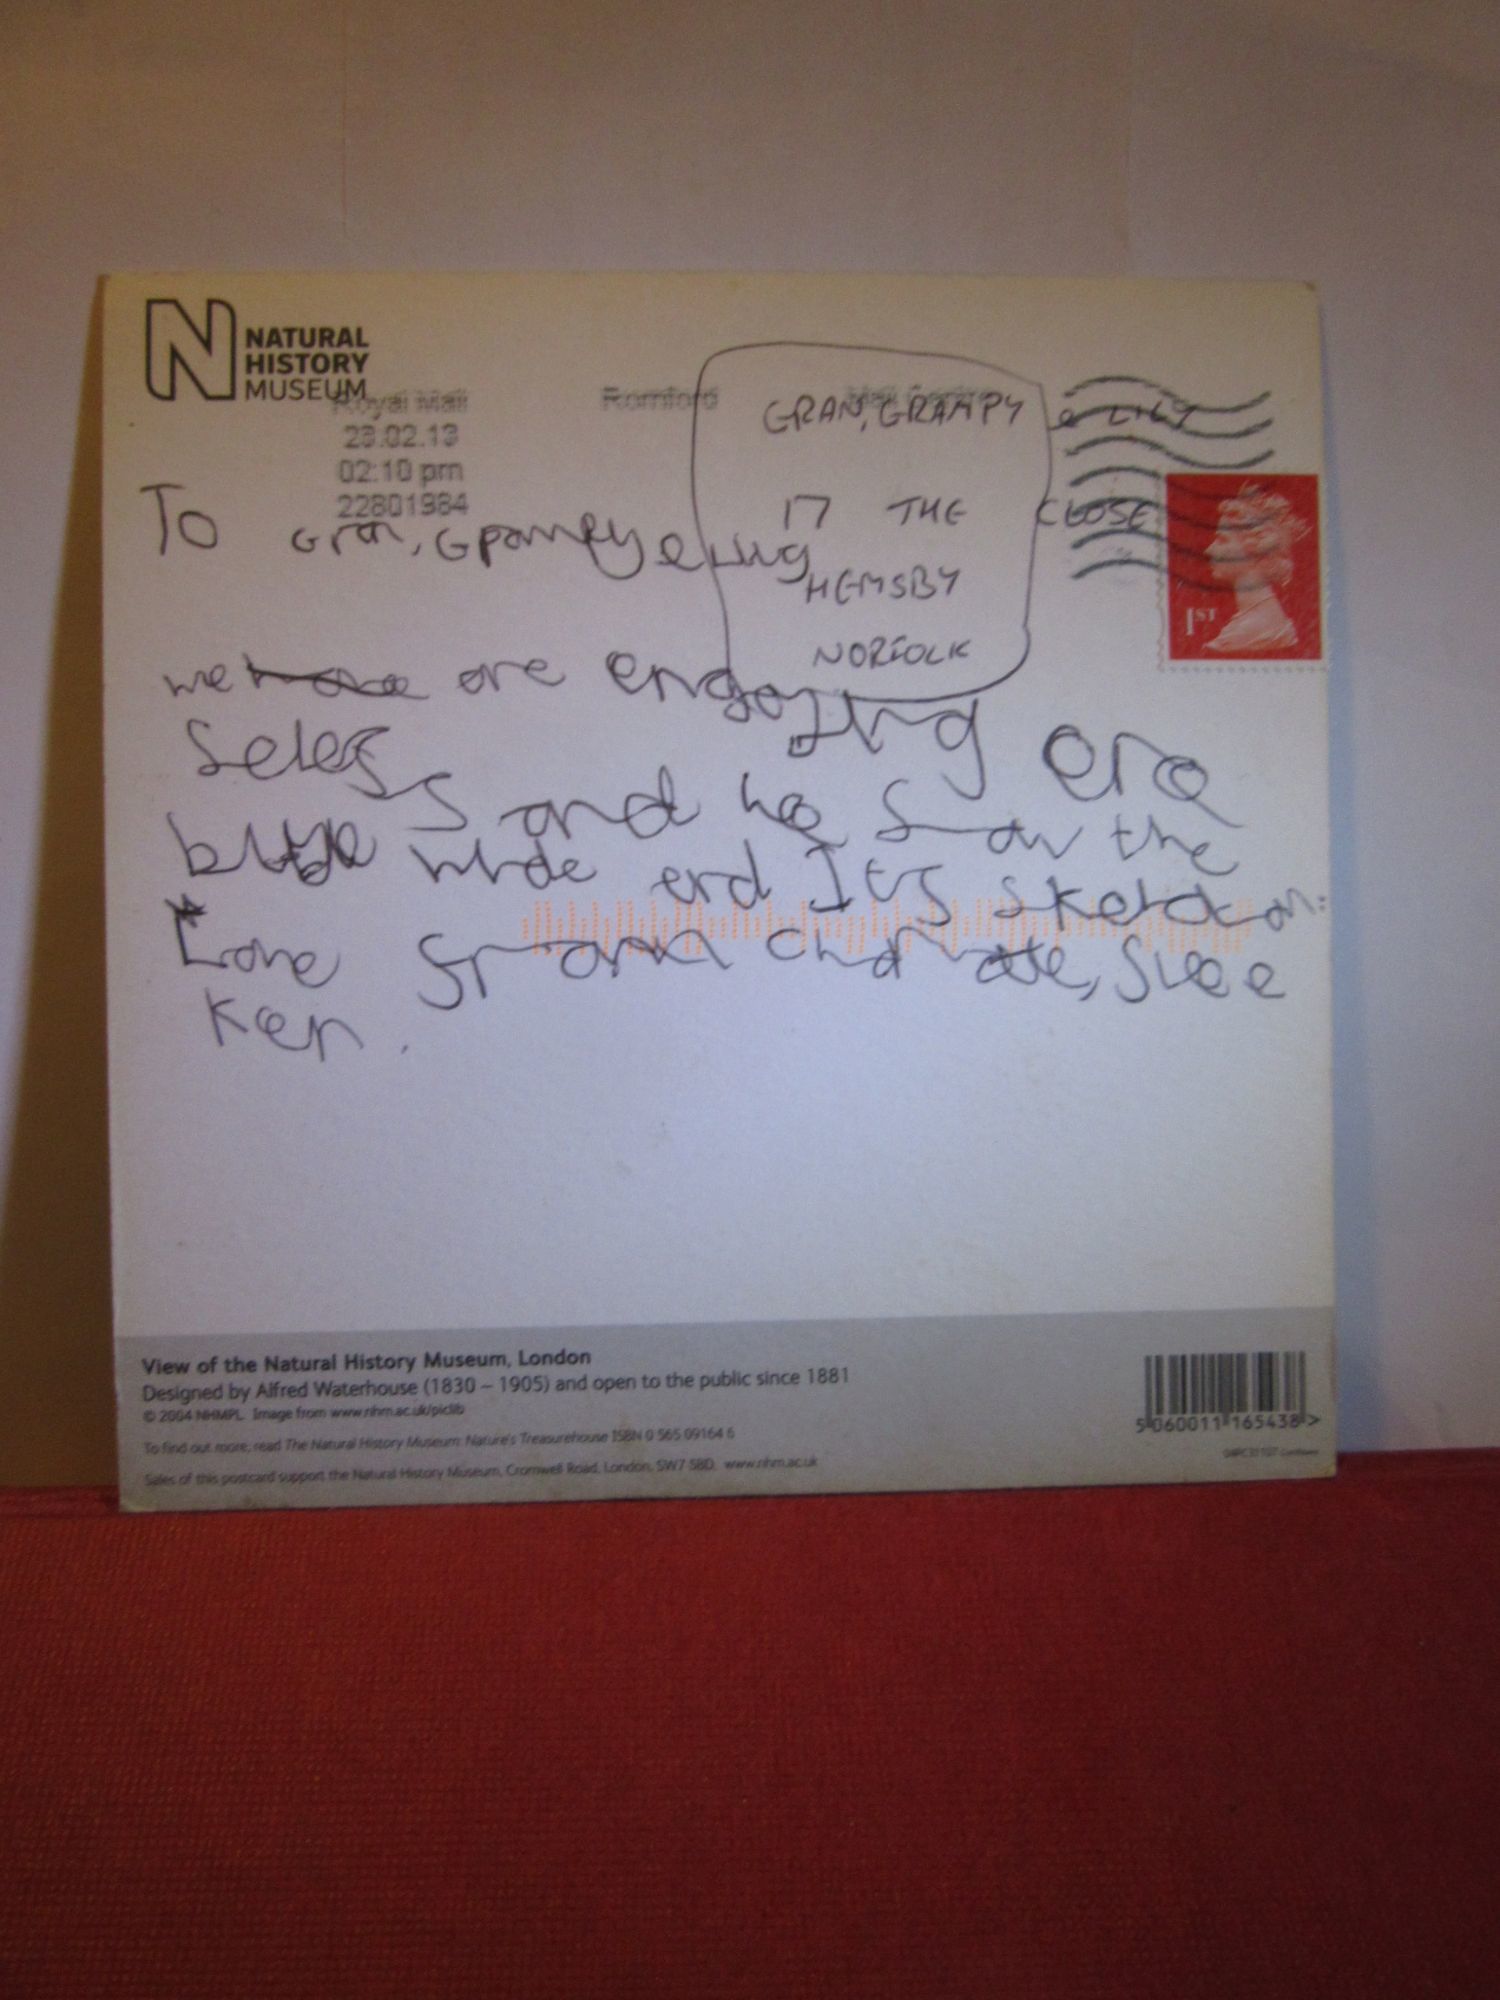 NATURAL
HISTORY
MUSEUM
Royal Mail Romford Mail Centre
23.02.13
02:10 pm
22801984
GRAN, GRAMPY & LILY
17 THE CLOSE
HEMSBY
NORFOLK
1ST
To Gran, Grampy & Lily
we are engoying
seles and we saw the
blue whale and Its skelaton.
Love and Kate, Suee
Ken.
View of the Natural History Museum, London
Designed by Alfred Waterhouse (1830 – 1905) and open to the public since 1881
© 2004 NHMPL. Image from www.nhm.ac.uk/piclib
To find out more, read The Natural History Museum: Nature's Treasurehouse ISBN 0 565 09164 6
Sales of this postcard support the Natural History Museum, Cromwell Road, London, SW7 5BD. www.nhm.ac.uk
5 060011 165438 >